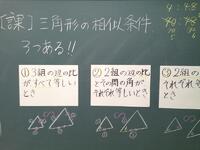 [課]三角形の相似条件
3つある!!
①3組の辺の比
がすべて等しい
とき
②2組の辺の比
とその間の角が
それぞれ等しい
とき
③2組
それぞれ
とき
4:48